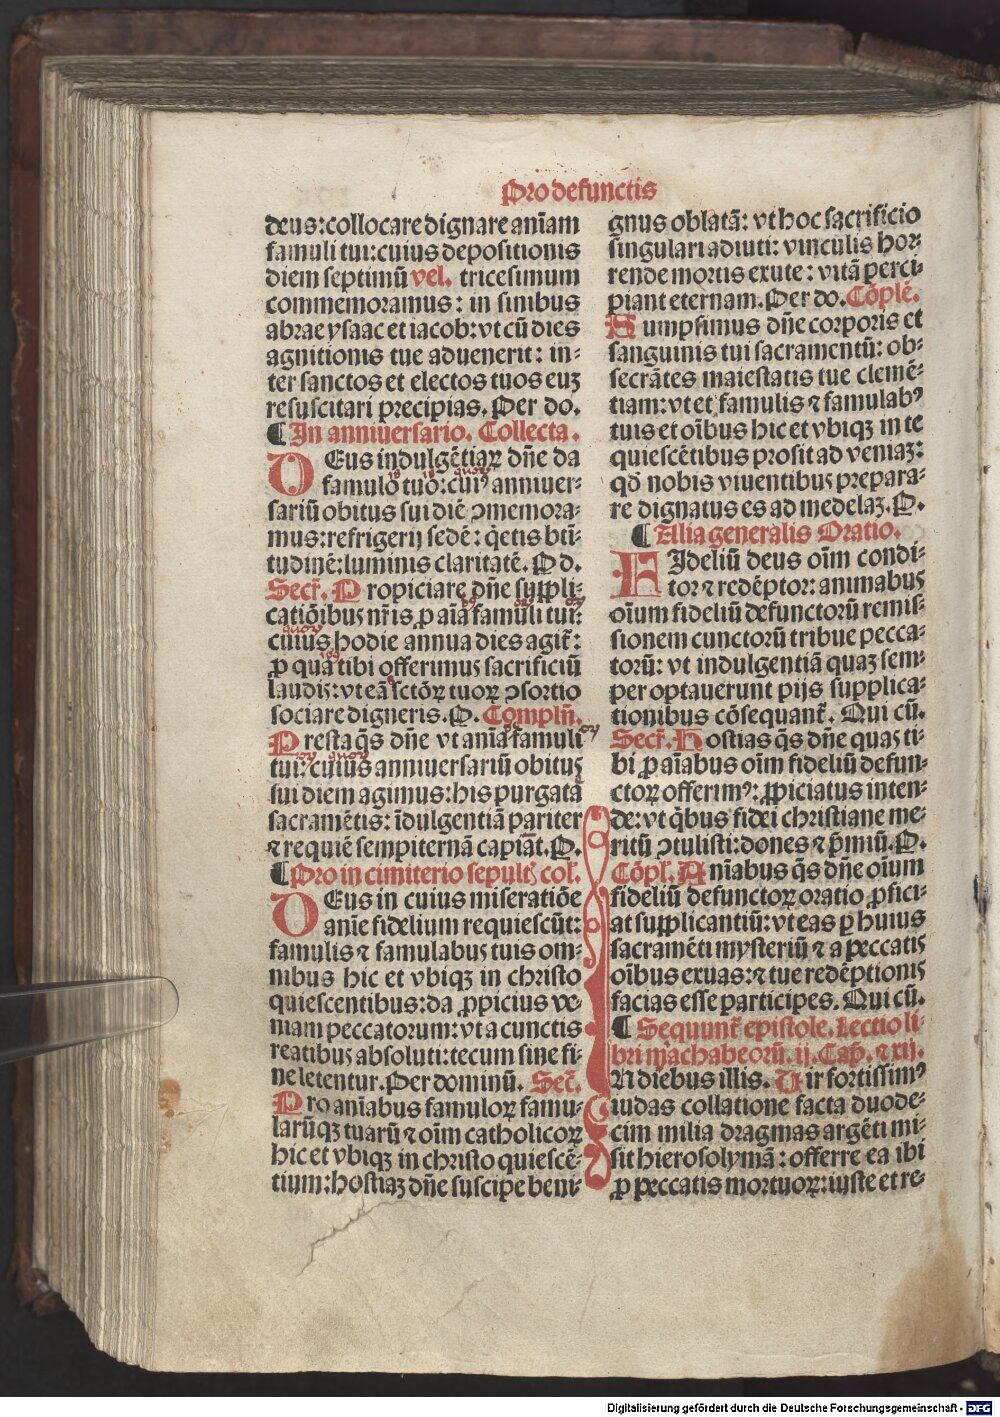 Pro defunctis
deus: collocare dignare aniam
famuli tui: cuius depositionis
diem septimū vel. tricesimum
commemoramus: in sinibus
abrae ysaac et iacob: vt cū dies
agnitionis tue aduenerit: in-
ter sanctos et electos tuos euꝫ
resuscitari precipias. Per do.
¶ In anniuersario. Collecta.
DEus indulgētiaꝝ dn̄e da
famulo tuo: cuiꝰ anniuer-
sariū obitus sui diē ↄmemora-
mus: refrigerij sedē: q̄etis bti-
tudinē: luminis claritatē. P d.
Secr̄. Propiciare dn̄e suppli-
catiōibus nr̄is ꝓ aīa famuli tui:
cuius hodie annua dies agit̄:
ꝓ qua tibi offerimus sacrificiū
laudis: vt eā sctōꝝ tuoꝝ ↄsortio
sociare digneris. P. Compln̄.
Presta q̄s dn̄e vt ania famuli
tui: cuius anniuersariū obitus
sui diem agimus: his purgata
sacramētis: īdulgentiā pariter
⁊ requiē sempiternā capiat. P.
¶ Pro in cimiterio sepult̄ col.
DEus in cuius miseratiōe
anīe fidelium requiescūt:
famulis ⁊ famulabus tuis om-
nibus hic et vbiqꝫ in christo
quiescentibus: da ꝓpicius ve-
niam peccatorum: vt a cunctis
reatibus absoluti: tecum sine fi-
ne letentur. Per dominū. Sec̄.
Pro anīabus famuloꝝ famu-
larūqꝫ tuarū ⁊ oīm catholicoꝝ
hic et vbiqꝫ in christo quiescē-
tium: hostiaꝫ dn̄e suscipe beni-
gnus oblatā: vt hoc sacrificio
singulari adiuti: vinculis hor-
rende mortis exute: vitā perci-
piant eternam. Per do. Cōplē.
Sumpsimus dn̄e corporis et
sanguinis tui sacramentū: ob-
secrātes maiestatis tue clemē-
tiam: vt et famulis ⁊ famulabꝰ
tuis et oībus hic et vbiqꝫ in te
quiescētibus prosit ad veniaꝫ:
qd̄ nobis viuentibus prepara-
re dignatus es ad medelaꝫ. P.
¶ Allia generalis Oratio.
FIdeliū deus oīm condi-
tor ⁊ redēptor: animabus
oīum fideliū defunctorū remis-
sionem cunctorū tribue pecca-
torū: vt indulgentiā quaꝫ sem-
per optauerunt pijs supplica-
tionibus cōsequant̄. Qui cū.
Secr̄. Hostias q̄s dn̄e quas ti-
bi ꝓ aīabus oīm fideliū defun-
ctoꝝ offerimꝰ: ꝓpiciatus inten-
de: vt q̄bus fidei christiane me-
ritū ↄtulisti: dones ⁊ p̄miū. P.
Cōpl. Anīabus q̄s dn̄e oīum
fideliū defunctoꝝ oratio ꝓfici-
at supplicantiū: vt eas ꝑ huius
sacramēti mysteriū ⁊ a peccatis
oībus exuas: ⁊ tue redēptionis
facias esse participes. Qui cū.
¶ Sequunt̄ epistole. Lectio li-
bri machabeorū. ij. Cap. ⁊ xij.
IN diebus illis. Vir fortissimꝰ
iudas collatione facta duode-
cim milia dragmas argēti mi-
sit hierosolymā: offerre ea ibi
ꝓ peccatis mortuoꝝ: iuste et re-
Digitalisierung gefördert durch die Deutsche Forschungsgemeinschaft - DFG